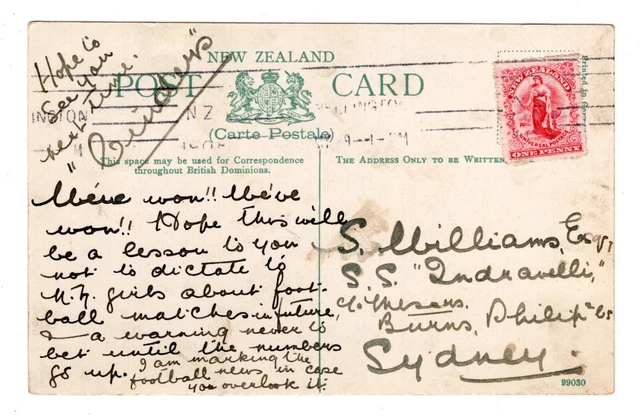 Hope to
see you
next time.
"Cinders"
NEW ZEALAND
POST CARD
(Carte Postale)
This space may be used for Correspondence
throughout British Dominions.
THE ADDRESS ONLY TO BE WRITTEN
Printed in
NEW ZEALAND
UNIVERSAL POSTAGE
ONE PENNY
NZ
We've won!! We've
won!! Hope this will
be a lesson to you
not to dictate to
N.Z. girls about foot-
ball matches in future,
& a warning never to
bet until the numbers
go up.
I am marking the
football news in case
you overlook it.
S. Williams, Esq,
S.S. "Indravelli,"
c/o Messrs.
Burns, Philip & Co
Sydney.
99030